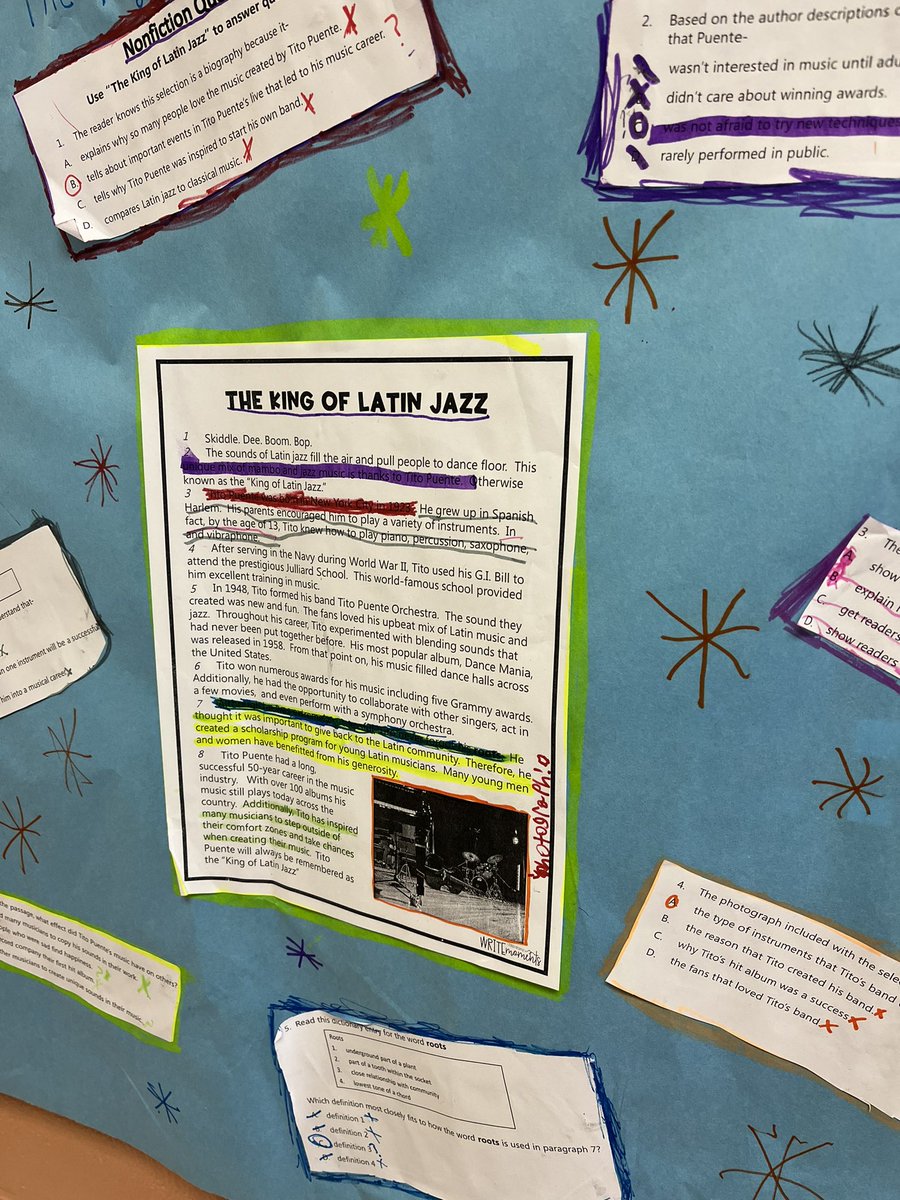 Nonfiction Qu
Use "The King of Latin Jazz" to answer qu
1. The reader knows this selection is a biography because it-
A. explains why so many people love the music created by Tito Puente. X
B. tells about important events in Tito Puente's live that led to his music career. ?
C. tells why Tito Puente was inspired to start his own band. X
D. compares Latin jazz to classical music. X
2. Based on the author descriptions
that Puente-
wasn't interested in music until adu
didn't care about winning awards.
was not afraid to try new technique
rarely performed in public.
THE KING OF LATIN JAZZ
1 Skiddle. Dee. Boom. Bop.
2 The sounds of Latin jazz fill the air and pull people to dance floor. This
unique mix of mambo and jazz music is thanks to Tito Puente. Otherwise
known as the "King of Latin Jazz."
3 Tito Puente was born in New York City in 1923. He grew up in Spanish
Harlem. His parents encouraged him to play a variety of instruments. In
fact, by the age of 13, Tito knew how to play piano, percussion, saxophone,
and vibraphone.
4 After serving in the Navy during World War II, Tito used his G.I. Bill to
attend the prestigious Julliard School. This world-famous school provided
him excellent training in music.
5 In 1948, Tito formed his band Tito Puente Orchestra. The sound they
created was new and fun. The fans loved his upbeat mix of Latin music and
jazz. Throughout his career, Tito experimented with blending sounds that
had never been put together before. His most popular album, Dance Mania,
was released in 1958. From that point on, his music filled dance halls across
the United States.
6 Tito won numerous awards for his music including five Grammy awards.
Additionally, he had the opportunity to collaborate with other singers, act in
a few movies, and even perform with a symphony orchestra.
7 He
thought it was important to give back to the Latin community. Therefore, he
created a scholarship program for young Latin musicians. Many young men
and women have benefitted from his generosity.
8 Tito Puente had a long,
successful 50-year career in the music
industry. With over 100 albums his
music still plays today across the
country. Additionally, Tito has inspired
many musicians to step outside of
their comfort zones and take chances
when creating their music. Tito
Puente will always be remembered as
the "King of Latin Jazz"
WRITEmoments
3. The
A. show
B. explain
C. get readers
D. show readers
derstand that-
X
n one instrument will be a successful
him into a musical career X
the passage, what effect did Tito Puente's music have on others?
d many musicians to copy his sounds in their work. X
ople who were sad find happiness.
record company their first hit album.
other musicians to create unique sounds in their music.
4. The photograph included with the selec
A. the type of instruments that Tito's band
B. the reason that Tito created his band. X
C. why Tito's hit album was a success X
D. the fans that loved Tito's band. X
5. Read this dictionary entry for the word roots
Roots
1. underground part of a plant
2. part of a tooth within the socket
3. close relationship with community
4. lowest tone of a chord
Which definition most closely fits to how the word roots is used in paragraph 7?
definition 1
definition 2
definition 3
definition 4